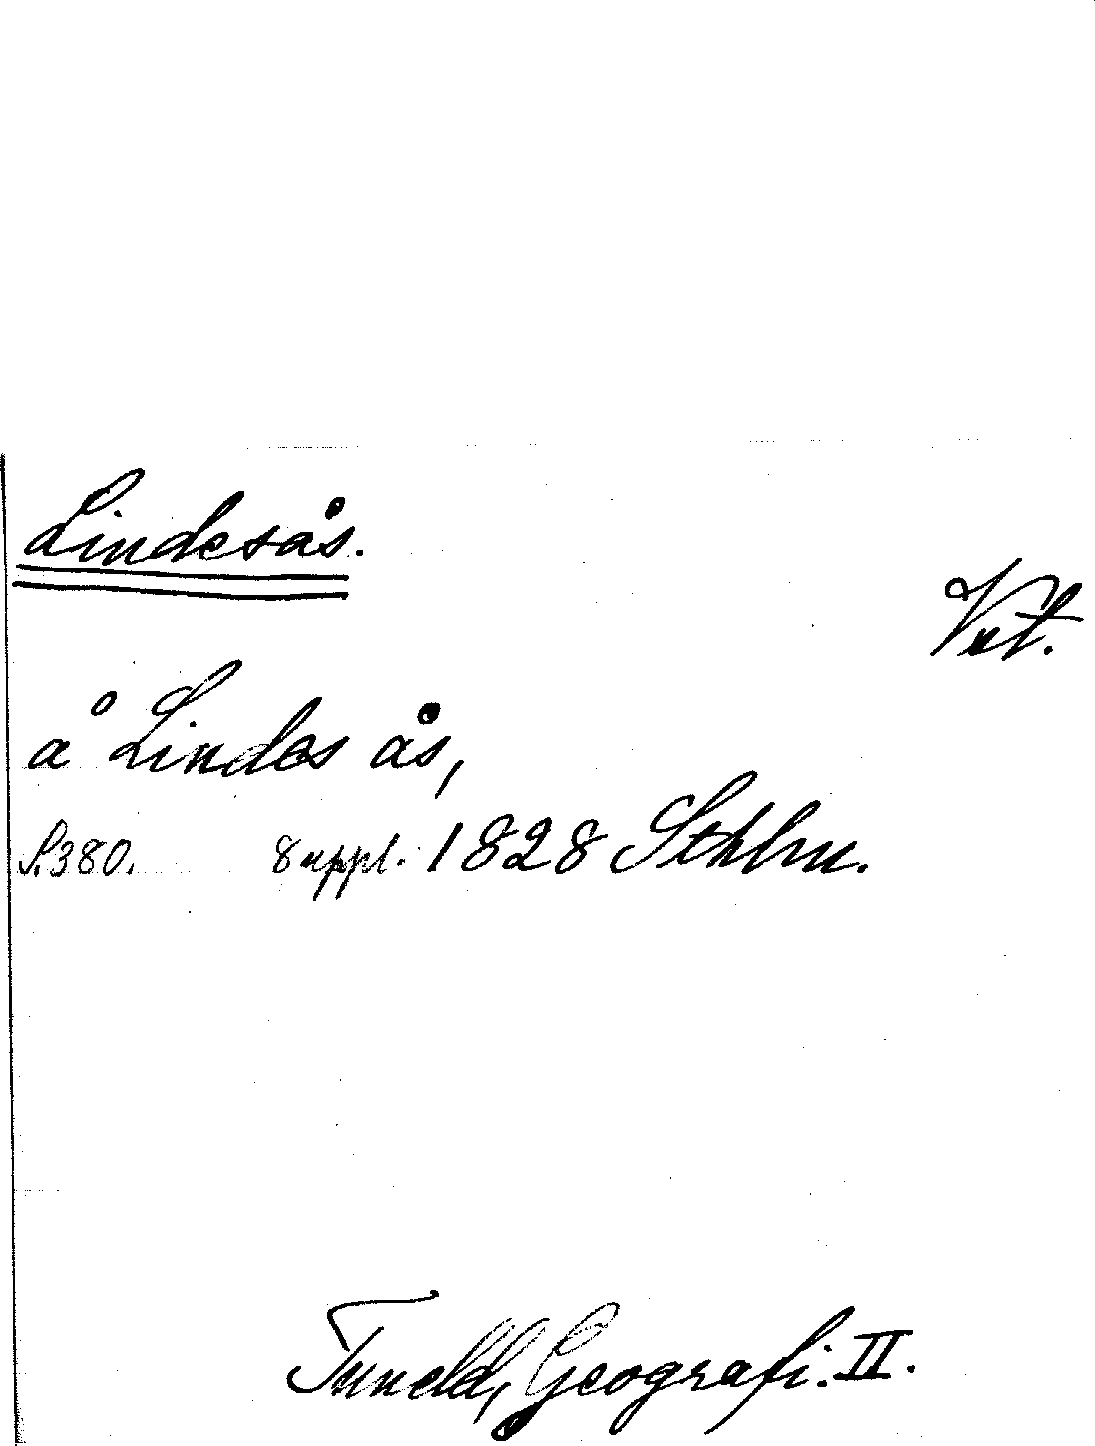 Lindesås.
Vet.
å Lindes ås,
S. 380. 8 uppl. 1828 Sthlm.
Tuneld, Geografi. II.